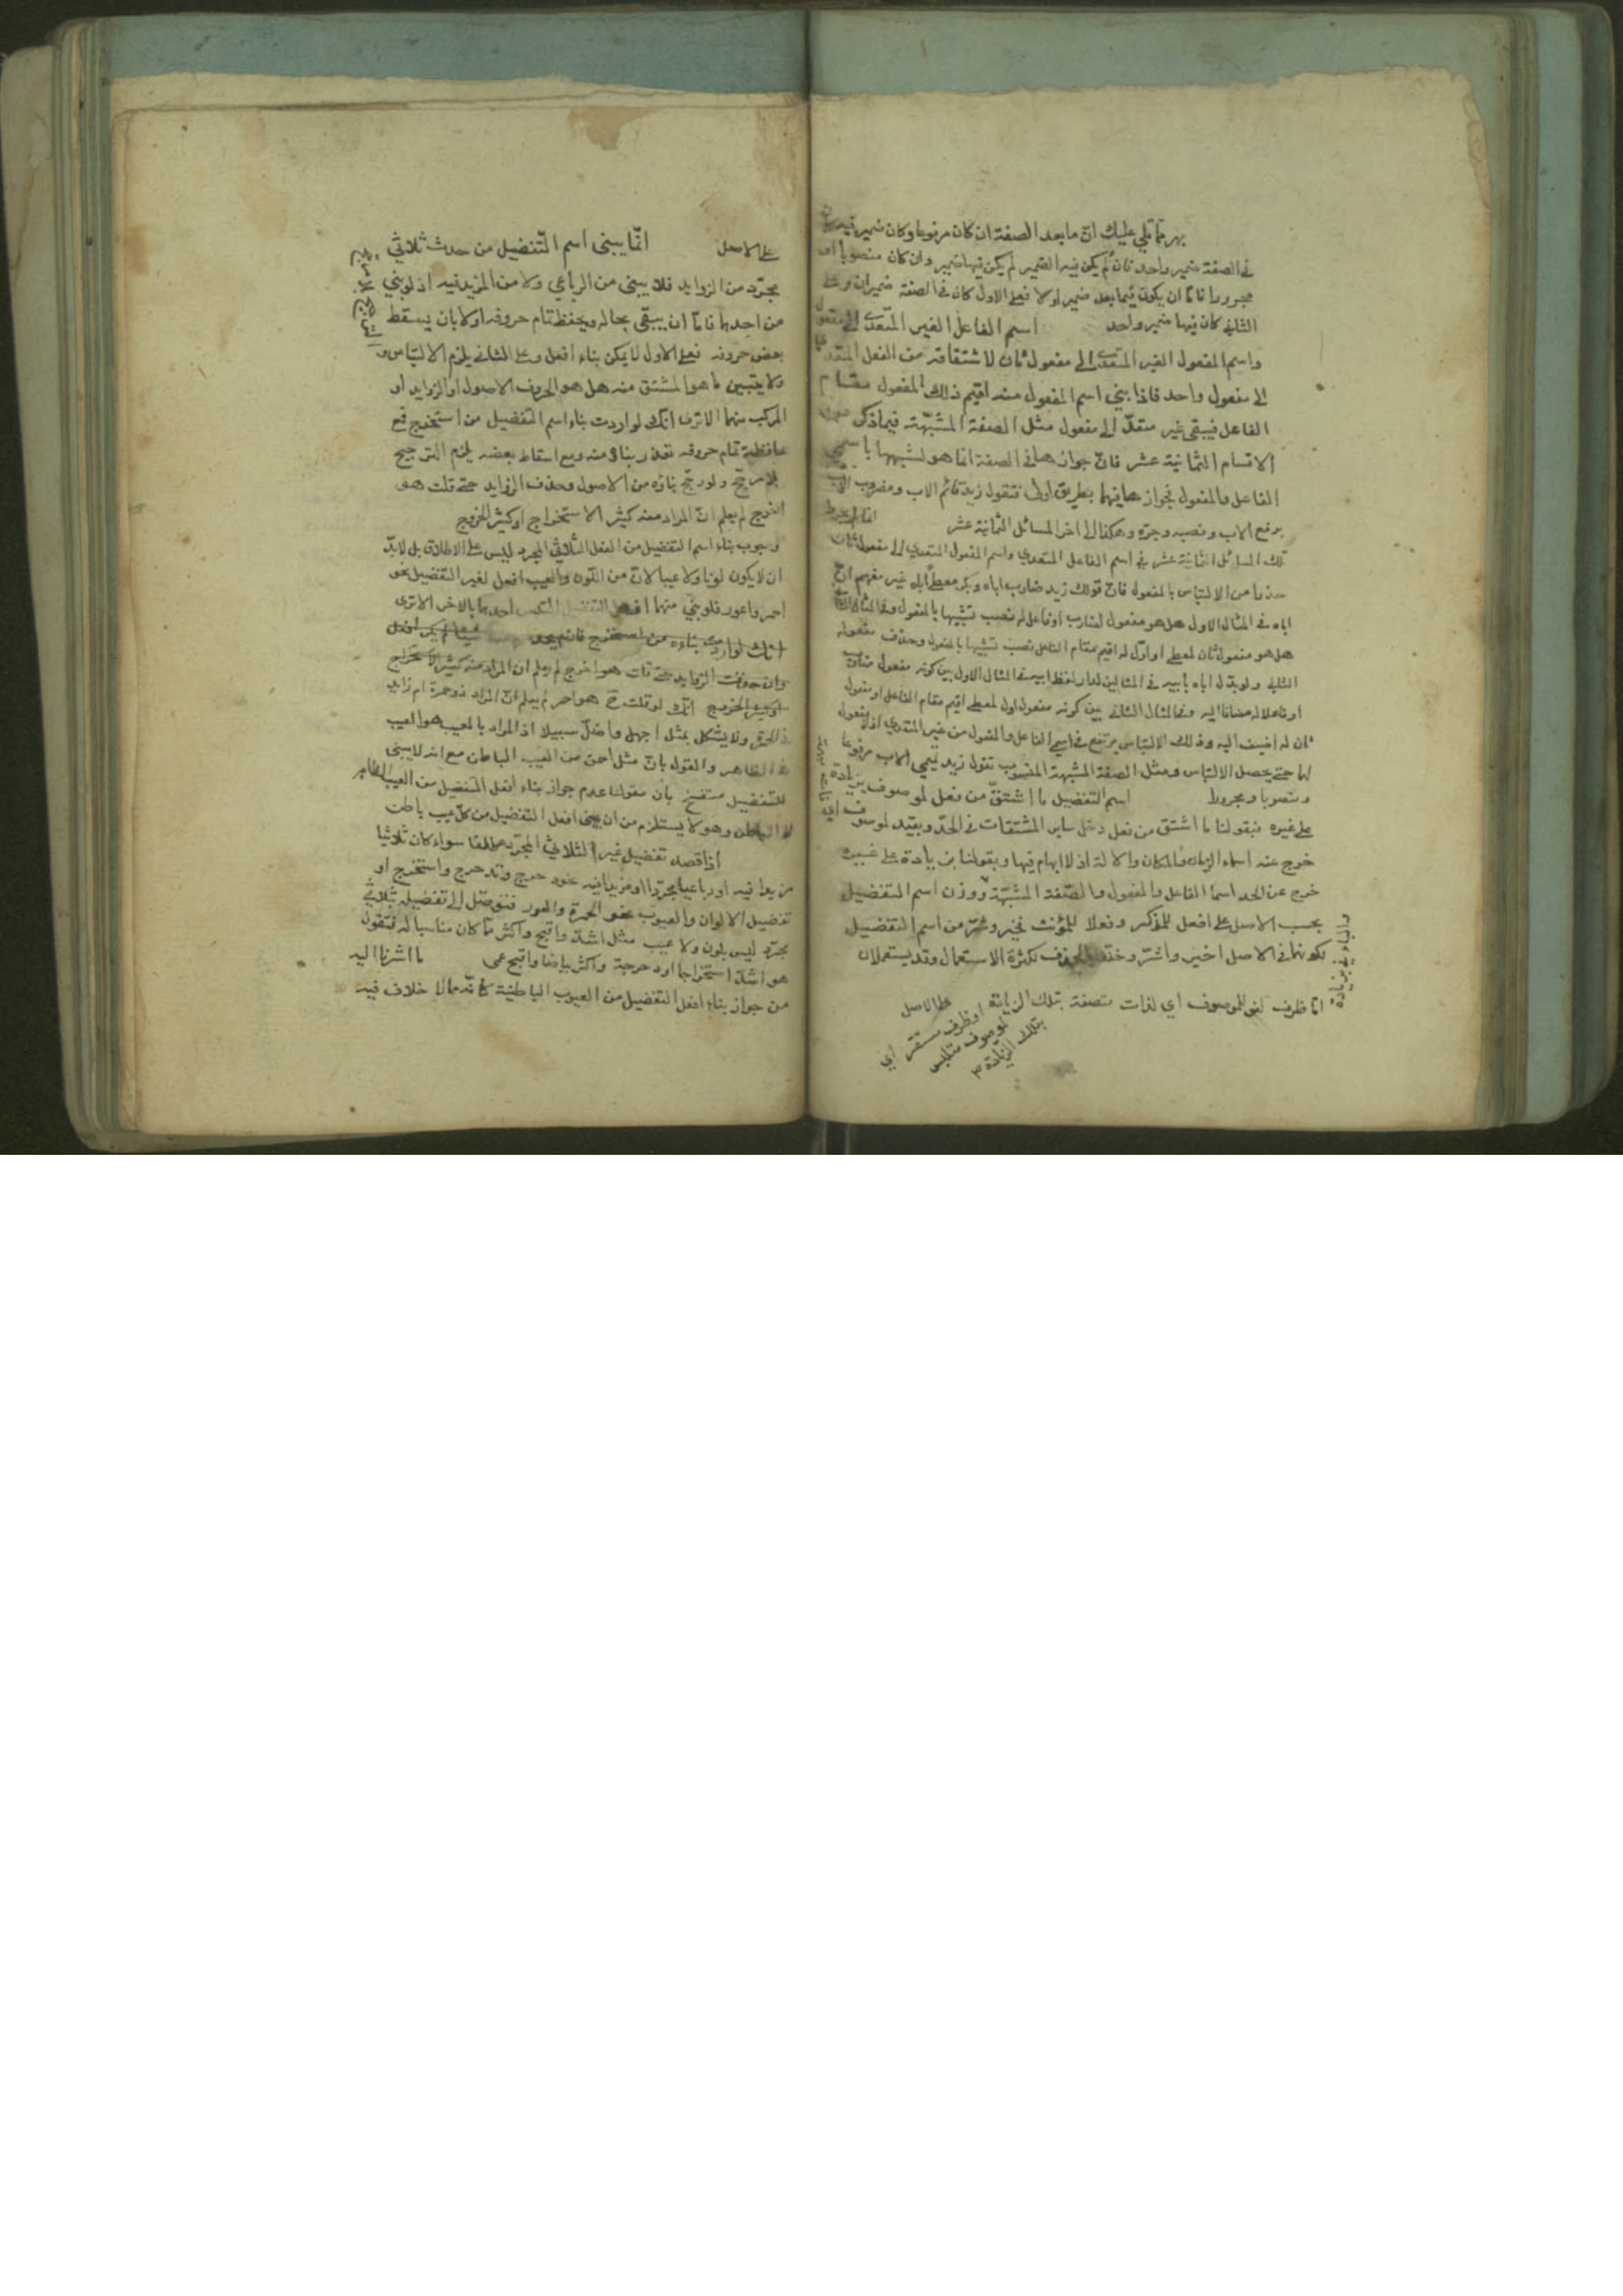 بهر مما تلي عليك ان ما بعد الصفة ان كان مرفوعا وكان ضمير فيه كان
في الصفة ضمير واحد فان لم يكن فيه الضمير لم يكن فيها ضمير وان كان منصوبا او
مجرورا فاما ان يكون فيما بعد ضمير اولا فعلى الاول كان في الصفة ضميران وعلى
الثاني كان فيها ضمير واحد اسم الفاعل الغير المتعدى الى مفعول
واسم المفعول الغير المتعدى الى مفعول ثان لاشتقاقه من الفعل المتعدى
الى مفعول واحد فاذا بني اسم المفعول منه اقيم ذلك المفعول مقام
الفاعل فيبقى غير متعد الى مفعول مثل الصفة المشبهة فيما ذكر من
الاقسام الثمانية عشر فان جوازها في الصفة انما هو لشبهها باسمي
الفاعل والمفعول فجوازها فيهما بطريق اولى فتقول زيد قائم الاب ومضروب الاب
برفع الاب ونصبه وجره وهكذا الى اخر المسائل الثمانية عشر
تلك المسائل الثمانية عشر في اسم الفاعل المتعدي واسم المفعول المتعدي الى مفعول ثان
حذرا من الالتباس بالمفعول فان قولك زيد ضارب اباه وبكر معطى اباه غير مفهم ان
اباه في المثال الاول هل هو مفعول لضارب او فاعل له نصب تشبيها بالمفعول وفي المثال الثاني
هل هو مفعول ثان لمعطى او اول له اقيم مقام الفاعل نصب تشبيها بالمفعول وحذف مفعوله
الثاني ولو بدل اباه بابيه في المثالين لدار لفظ ابيه في المثال الاول بين كونه مفعول مضارب
او فاعلا له مضافا اليه وفي المثال الثاني بين كونه مفعول اول لمعطى اقيم مقام الفاعل او مفعول
ثان له اضيف اليه وذلك الالتباس يرتفع في اسمي الفاعل والمفعول من غير المتعدي اذ لا مفعول
لهما حتى يحصل الالتباس ومثل الصفة المشبهة المنسوب تقول زيد تميمي الاب مرفوعا
ومنصوبا ومجرورا اسم التفضيل ما اشتق من فعل لموصوف بزيادة
على غيره فبقولنا ما اشتق من فعل دخل ساير المشتقات في الحد وبقيد لموصوف
خرج عنه اسماء الزمان والمكان والالة اذ لا ابهام فيها وبقولنا بزيادة على غيره
خرج عن الحد اسما الفاعل والمفعول والصفة المشبهة ووزن اسم التفضيل
بحسب الاصل على افعل للمذكر وفعلا للمؤنث فخير وشر من اسم التفضيل
لكونهما في الاصل اخير واشر وخففا بالحذف لكثرة الاستعمال وقد يستعملان
والباء في بزيادة
اما ظرف لغو للموصوف اي لذات متصفة بتلك الزيادة
او ظرف مستقر اي
لموصوف متلبس
بتلك الزيادة
على الاصل
على الاصل انما يبنى اسم التفضيل من حدث ثلاثي
مجرد من الزوايد فلا يبنى من الرباعي ولا من المزيد فيه اذ لو بني
من احدهما فاما ان يبقى بحاله ويحفظ تمام حروفه اولا بان يسقط
بعض حروفه فعلى الاول لا يمكن بناء افعل وعلى الثاني يلزم الالتباس و
ولا يتبين ما هو المشتق منه هل هو الحروف الاصول او الزوايد او
المركب منهما الا ترى انك لو اردت بناء اسم التفضيل من استخرج فمع
محافظة تمام حروفه تعذر بناؤه منه ومع اسقاط بعضه يلزم الترجيح
بلا مرجح ولو رجح بناؤه من الاصول وحذف الزوايد حتى قلت هو
اخرج لم يعلم ان المراد منه كثير الاستخراج او كثير الخروج
وجوب بناء اسم التفضيل من الفعل الثلاثي المجرد ليس على الاطلاق بل لابد
ان لا يكون لونا ولا عيبا لان من اللون والعيب افعل لغير التفضيل نحو
احمر واعور فلو بني منهما افعل التفضيل التبس احدهما بالاخر الا ترى
انك لو اردت بناءه من استخرج
وان حذفت الزوايد حتى قلت هو اخرج لم يعلم ان المراد منه كثير الاستخراج
او كثير الخروج انك لو قلت هو احمر لم يعلم ان المراد ذو حمرة ام زايد
في الحمرة ولا يشكل بمثل اجهل واضل سبيلا اذ المراد بالعيب هو العيب
الظاهر والقول بان مثل احمق من العيب الباطن مع انه لا يبنى
للتفضيل مندفع بان مقولنا عدم جواز بناء افعل التفضيل من العيب الظاهر
لا الباطن وهو لا يستلزم من ان يبنى افعل التفضيل من كل عيب باطن
اذا قصد تفضيل غير الثلاثي المجرد مطلقا سواء كان ثلاثيا
مزيدا فيه او رباعيا مجردا او مزيدا فيه نحو دحرج وتدحرج واستخرج او
تفضيل الالوان والعيوب نحو الحمرة والعور فنتوصل الى تفضيله بثلاثي
مجرد ليس بلون ولا عيب مثل اشد واقبح واكثر مما كان مناسبا له فتقول
هو اشد استخراجا او دحرجة واكثر بياضا واقبح عمى ما اشرنا اليه
من جواز بناء افعل التفضيل من العيوب الباطنية مما قد مالا خلاف فيه